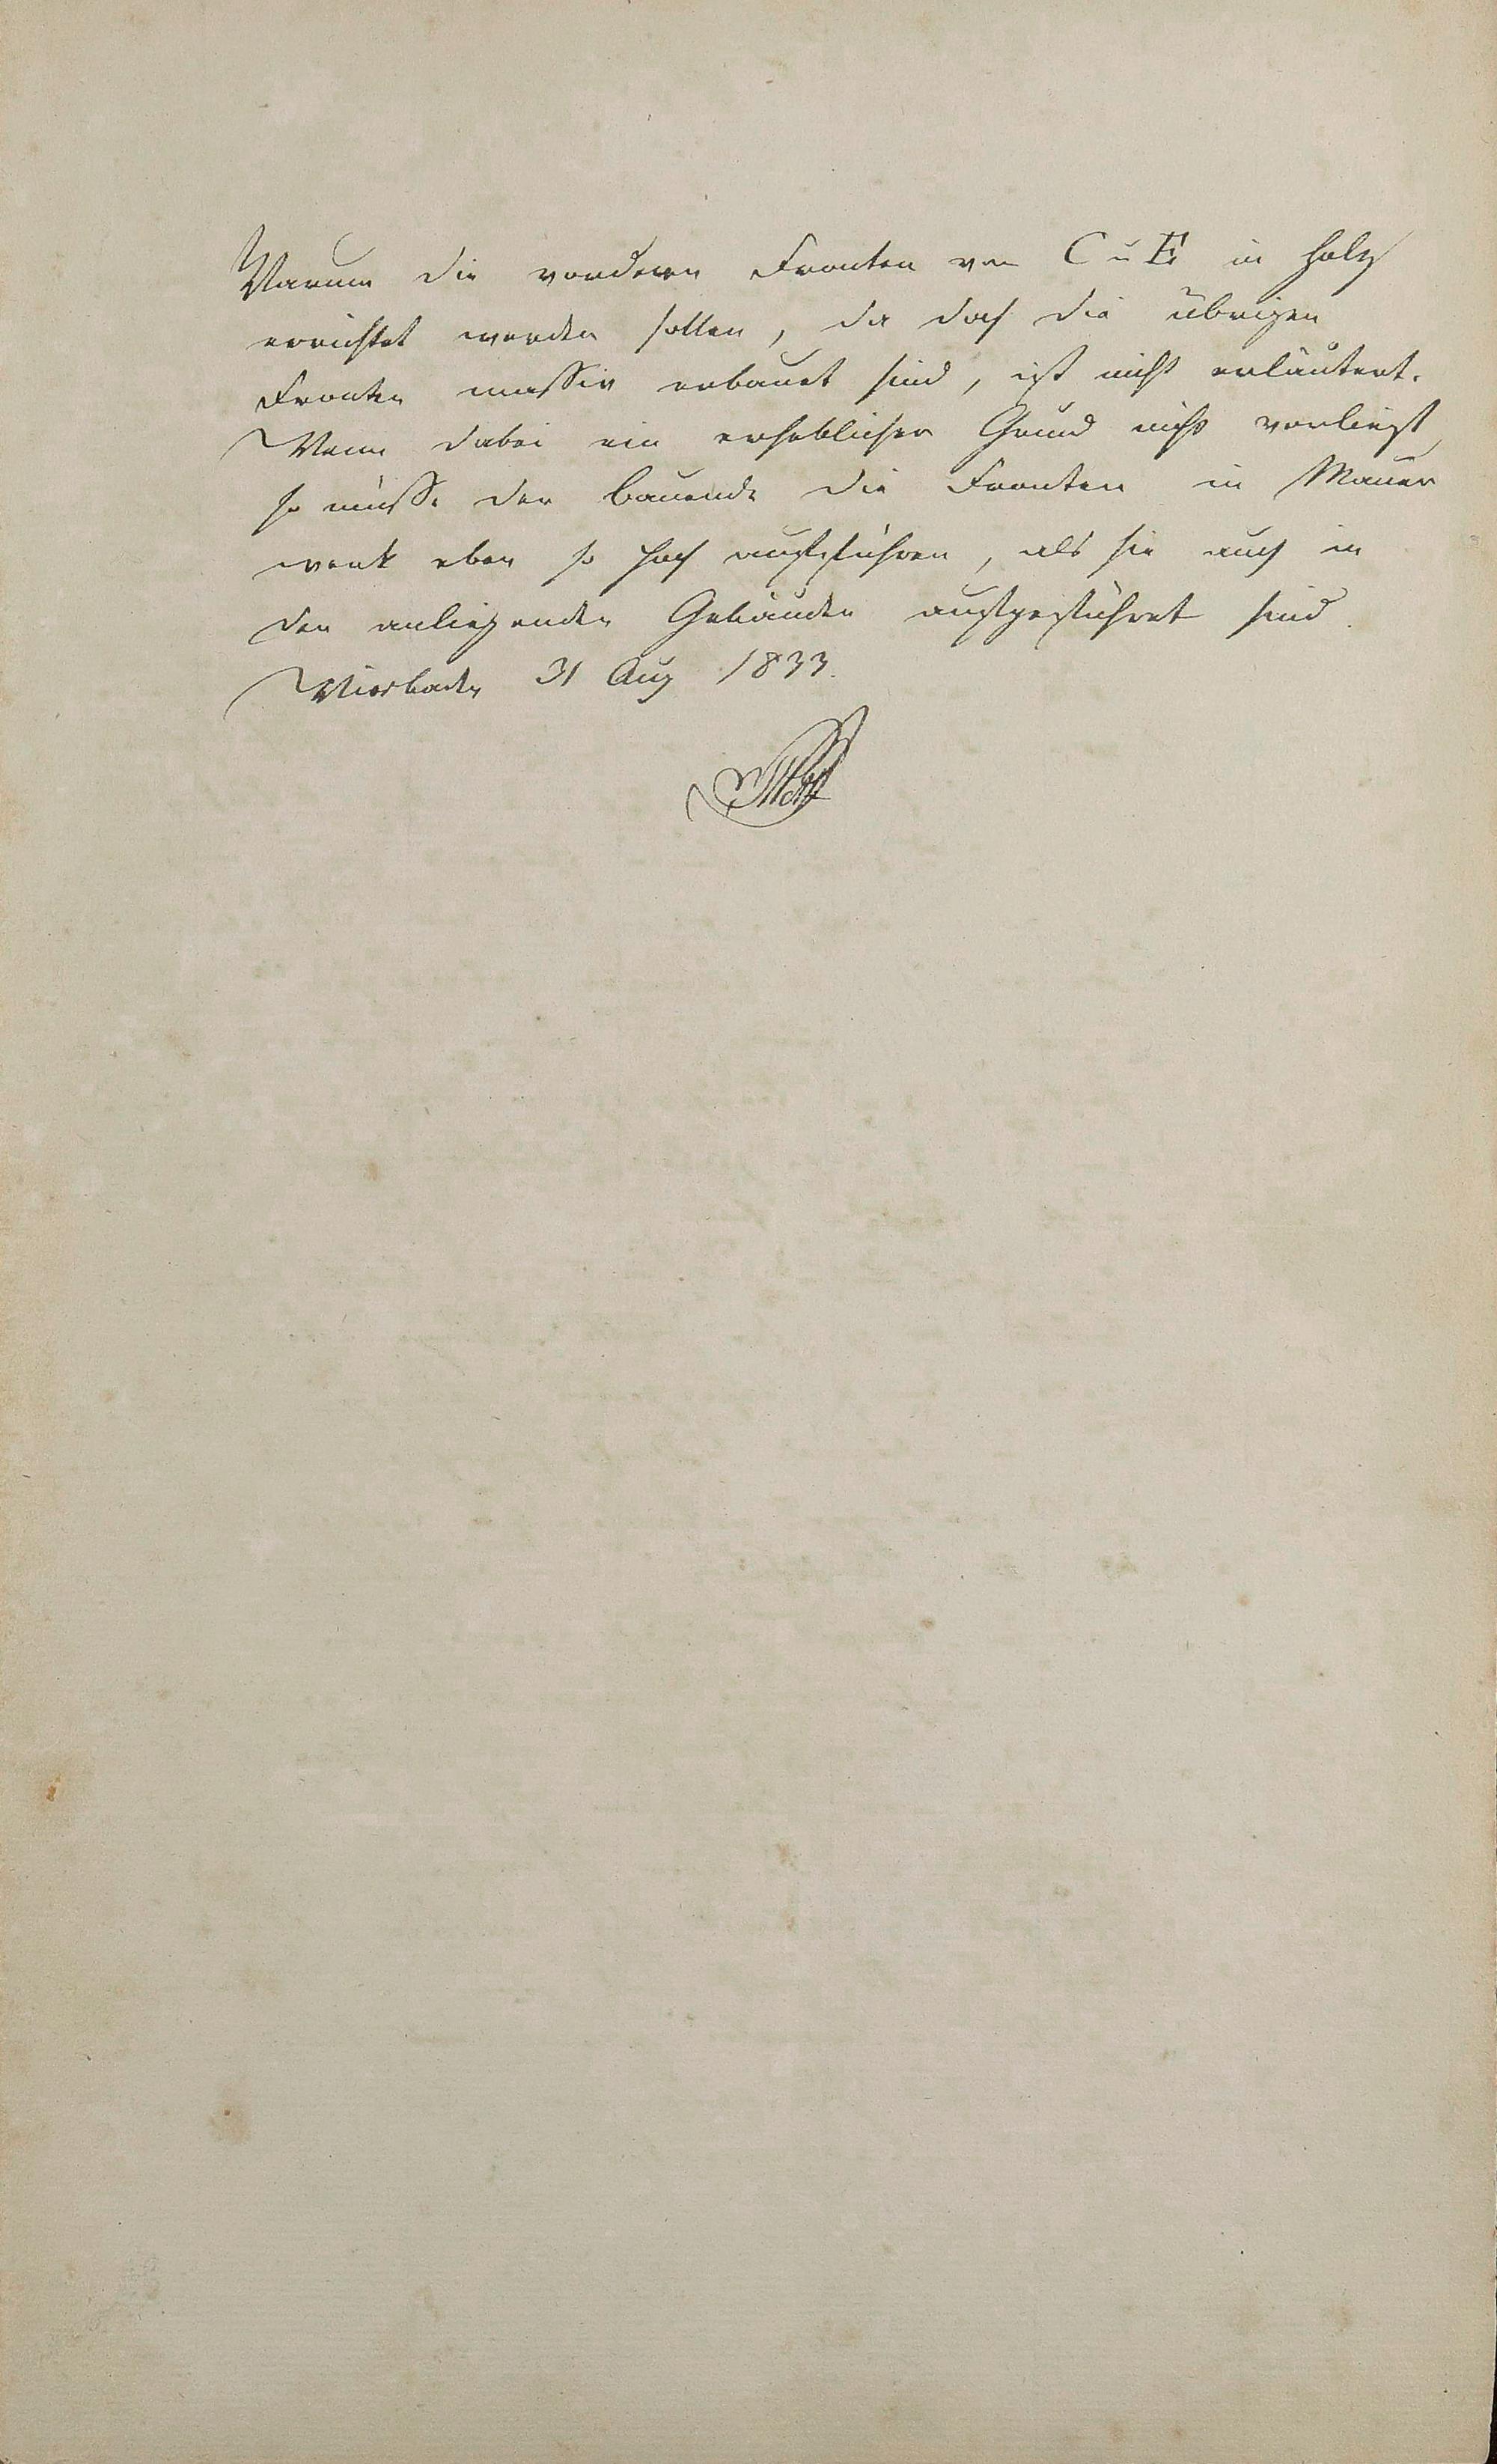 Warum die vorderen Fronten von C u E in Holz
errichtet werden sollen, da doch die übrigen
Fronten massiv erbauet sind, ist nicht erläutert.
Wenn dabei ein erheblicher Grund nicht vorliegt,
so müsse der Bauende die Fronten in Mauer
werk eben so hoch aufführen, als sie auch in
den anliegenden Gebäuden aufgeführt sind.
Wiesbaden 31 Aug 1833.